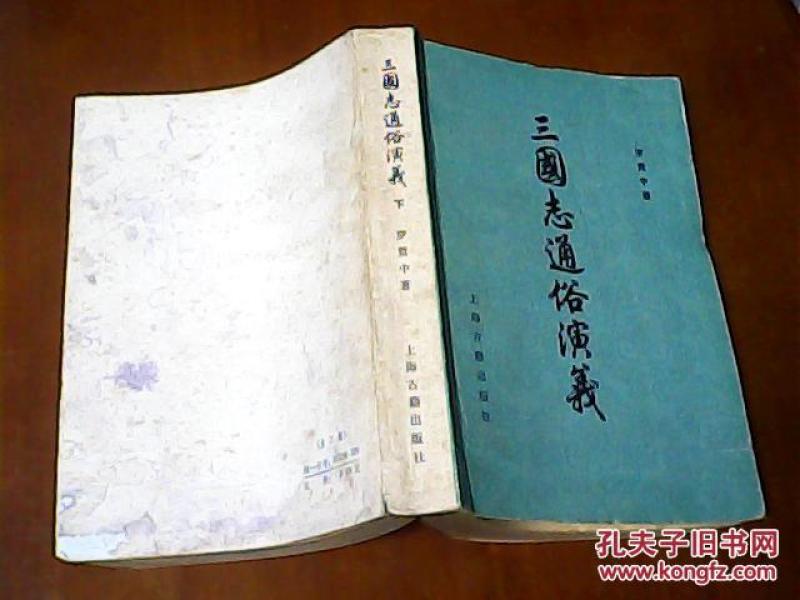 三國志通俗演義
罗贯中著
上海古籍出版社
三國志通俗演義
下
罗贯中著
上海古籍出版社
孔夫子旧书网
www.kongfz.com